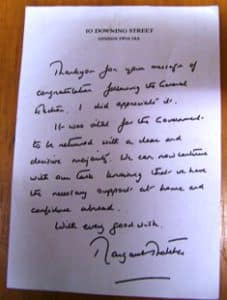 10 DOWNING STREET
LONDON SW1A 2AA
Thankyou for your message of
congratulation following the General
Election. I did appreciate it.
It was vital for the Government
to be returned with a clear and
decisive majority. We can now continue
with our task knowing that we have
the necessary support at home and
confidence abroad.
With every good wish.
Margaret Thatcher